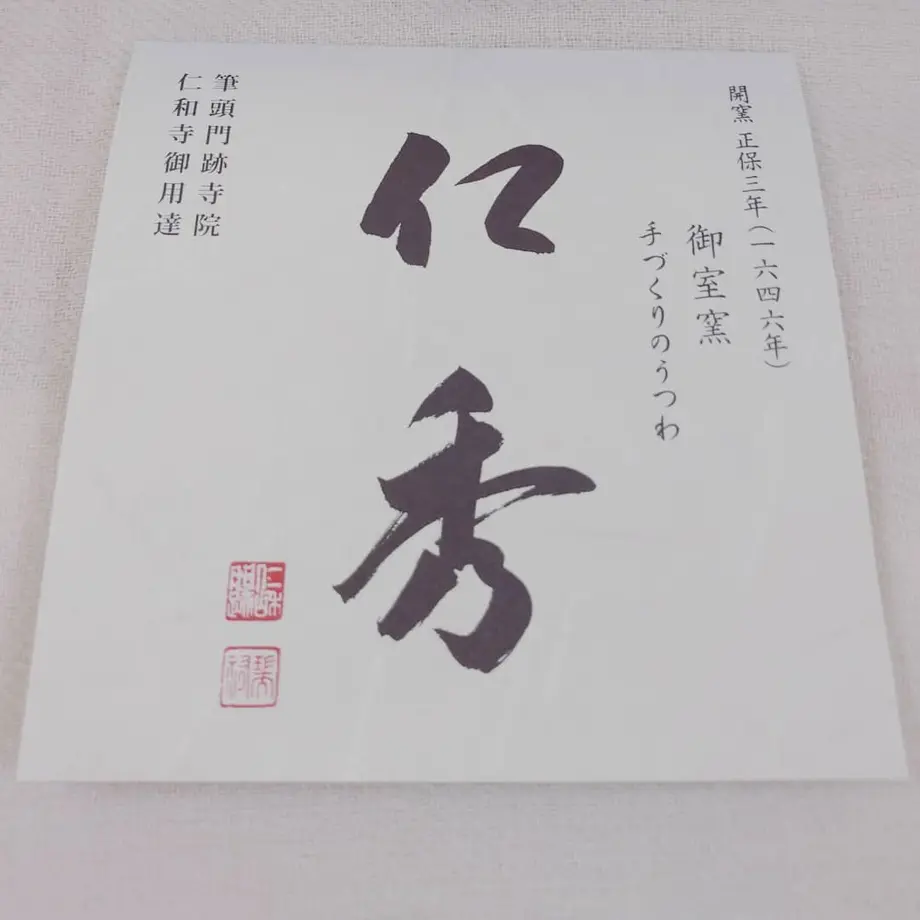 開窯 正保三年(一六四六年)
御室窯
手づくりのうつわ
仁秀
筆頭門跡寺院
仁和寺御用達